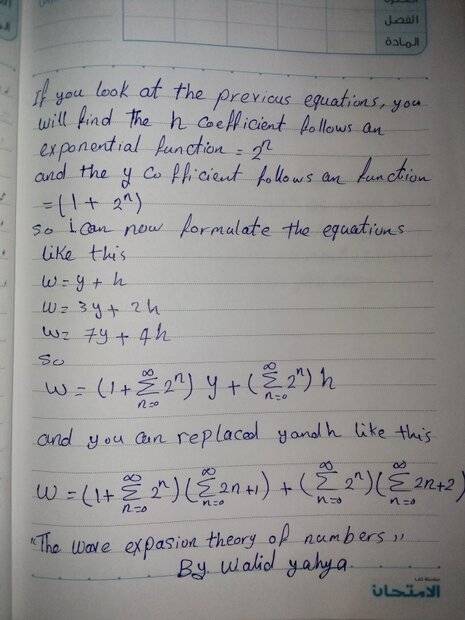 الفصل
المادة
If you look at the previous equations, you
will find the h coefficient follows an
exponential function = 2^n
and the y cofficient follows an function
=(1 + 2^n)
so i can now formulate the equations
like this
w = y + h
w = 3y + 2h
w = 7y + 4h
so
w = (1+∑_{n=0}^{∞} 2^n) y + (∑_{n=0}^{∞} 2^n) h
and you can replaced y and h like this
w = (1+∑_{n=0}^{∞} 2^n)(∑_{n=0}^{∞} 2n+1) + (∑_{n=0}^{∞} 2^n)(∑_{n=0}^{∞} 2n+2)
"The wave expasion theory of numbers"
By walid yahya
الامتحان